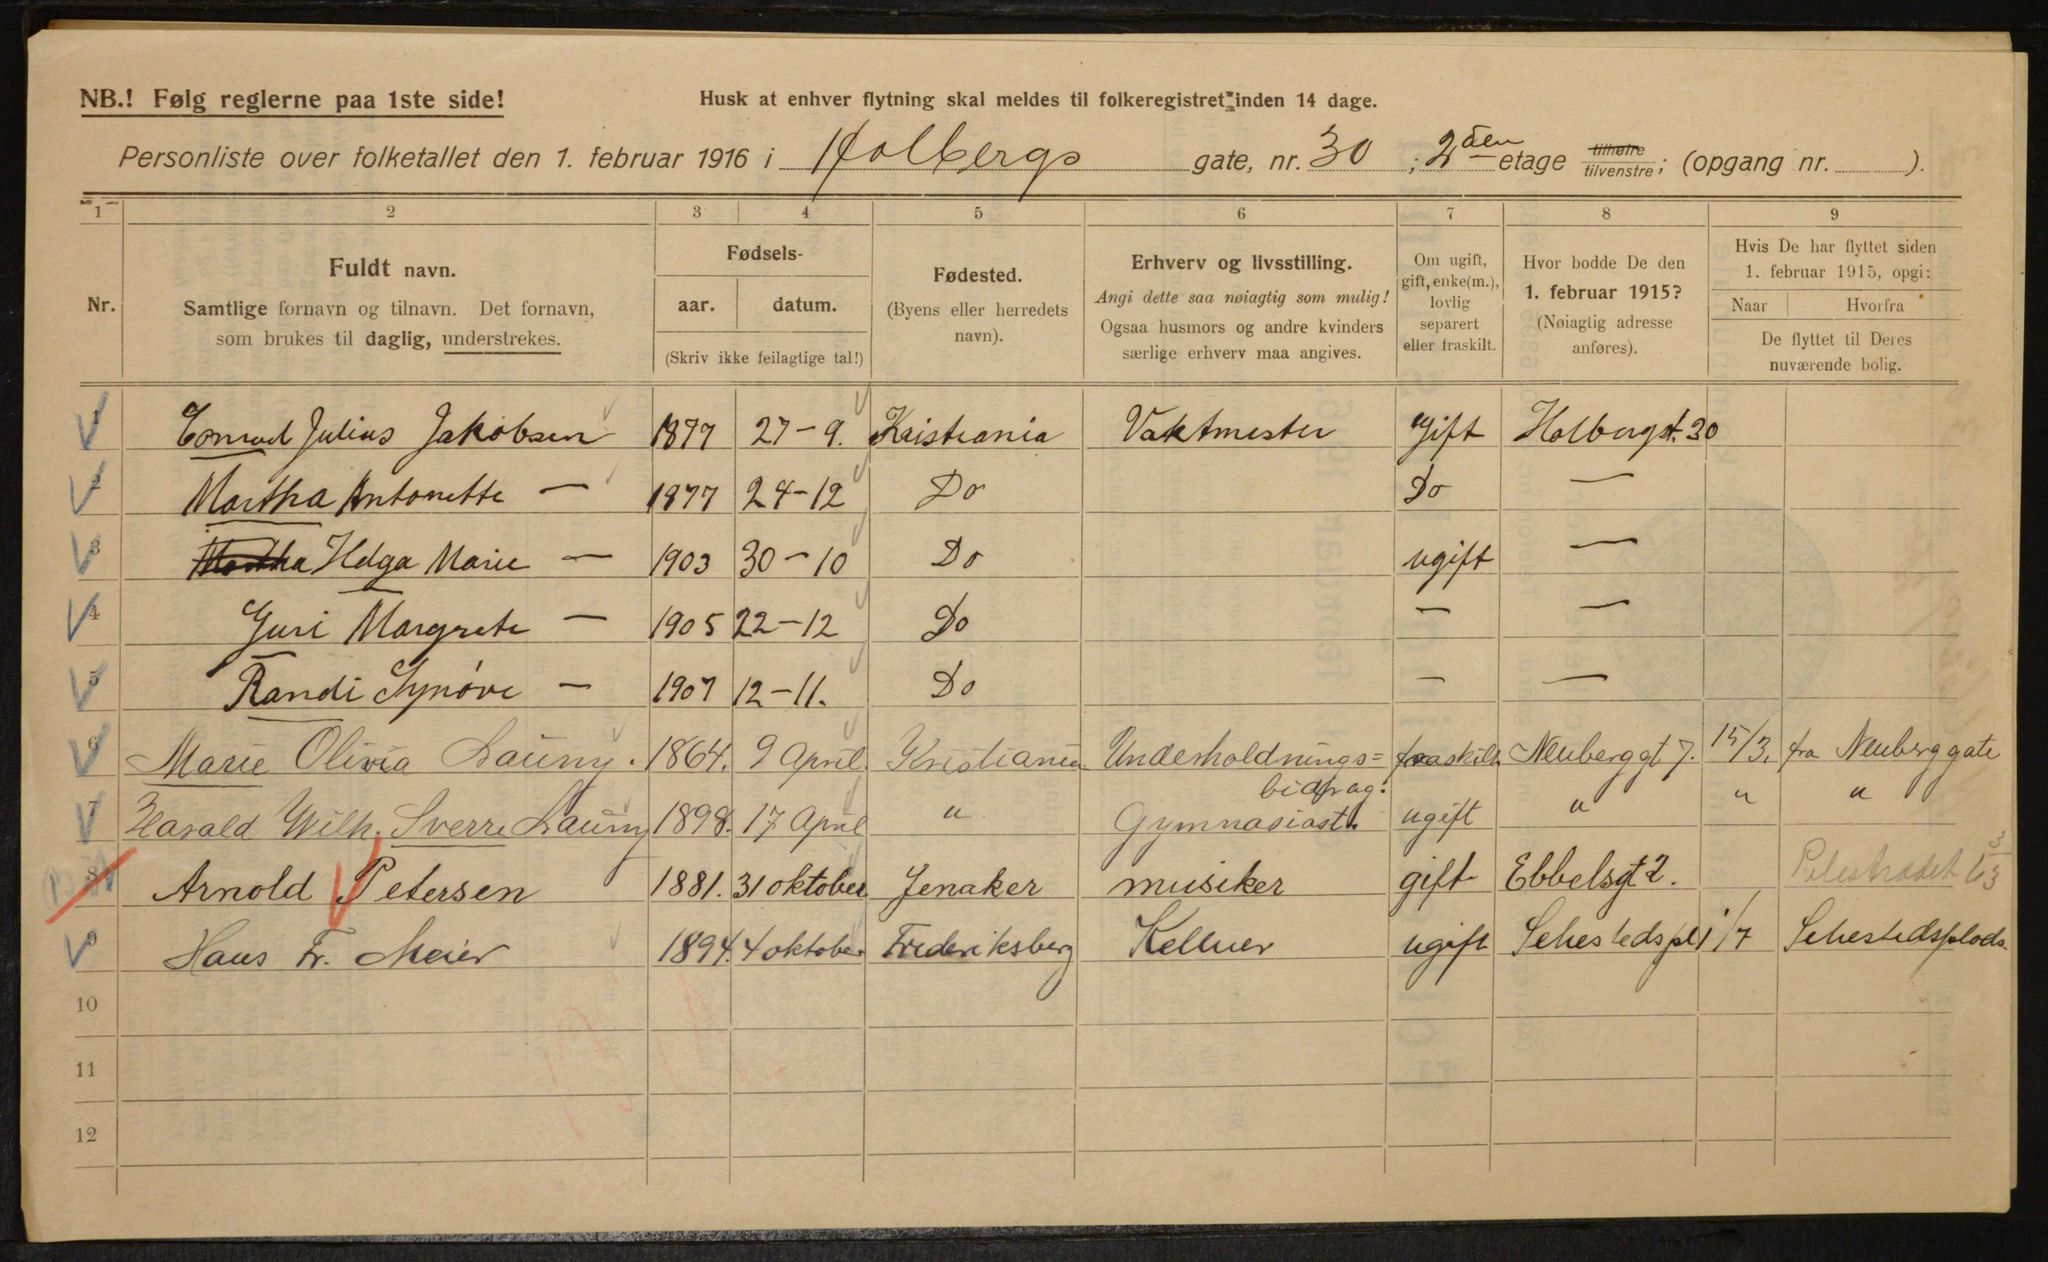 NB.! Følg reglerne paa 1ste side!
Husk at enhver flytning skal meldes til folkeregistret inden 14 dage.
Personliste over folketallet den 1. februar 1916 i Holbergs gate, nr. 30 ; 2den etage tilhøire tilvenstre; (opgang nr. ).
1 2 3 4 5 6 7 8 9
Nr.
Fuldt navn.
Samtlige fornavn og tilnavn. Det fornavn,
som brukes til daglig, understrekes.
Fødsels-
aar. datum.
(Skriv ikke feilagtige tal!)
Fødested.
(Byens eller herredets
navn).
Erhverv og livsstilling.
Angi dette saa nøiagtig som mulig!
Ogsaa husmors og andre kvinders
særlige erhverv maa angives.
Om ugift,
gift, enke(m.),
lovlig
separert
eller fraskilt.
Hvor bodde De den
1. februar 1915?
(Nøiagtig adresse
anføres).
Hvis De har flyttet siden
1. februar 1915, opgi:
Naar Hvorfra
De flyttet til Deres
nuværende bolig.
1 Conrad Julius Jakobsen 1877 27-9. Kristiania Vaktmester Gift Holbergst. 30
2 Martha Antonette — 1877 24-12 Do Do —
3 Martha Helga Marie — 1903 30-10 Do ugift —
4 Guri Margrete — 1905 22-12 Do — —
5 Randi Synøve — 1907 12-11. Do — —
6 Marie Olivia Launy. 1864. 9 April Kristiania Underholdnings= fraskilt Neuberggt 7. 15/3. fra Neuberggate
bidrag.
7 Harald Wilh. Sverre Launy 1898. 17 April " Gymnasiast. ugift " " "
8 Arnold Petersen 1881. 31 oktober Jenaker musiker gift Ebbelsgt 2. Pilestrædet 63
9 Hans Fr. Meier 1894. 4 oktober Frederiksberg Kellner ugift Sehestedspl 1/7 Sehestedsplads.
10
11
12